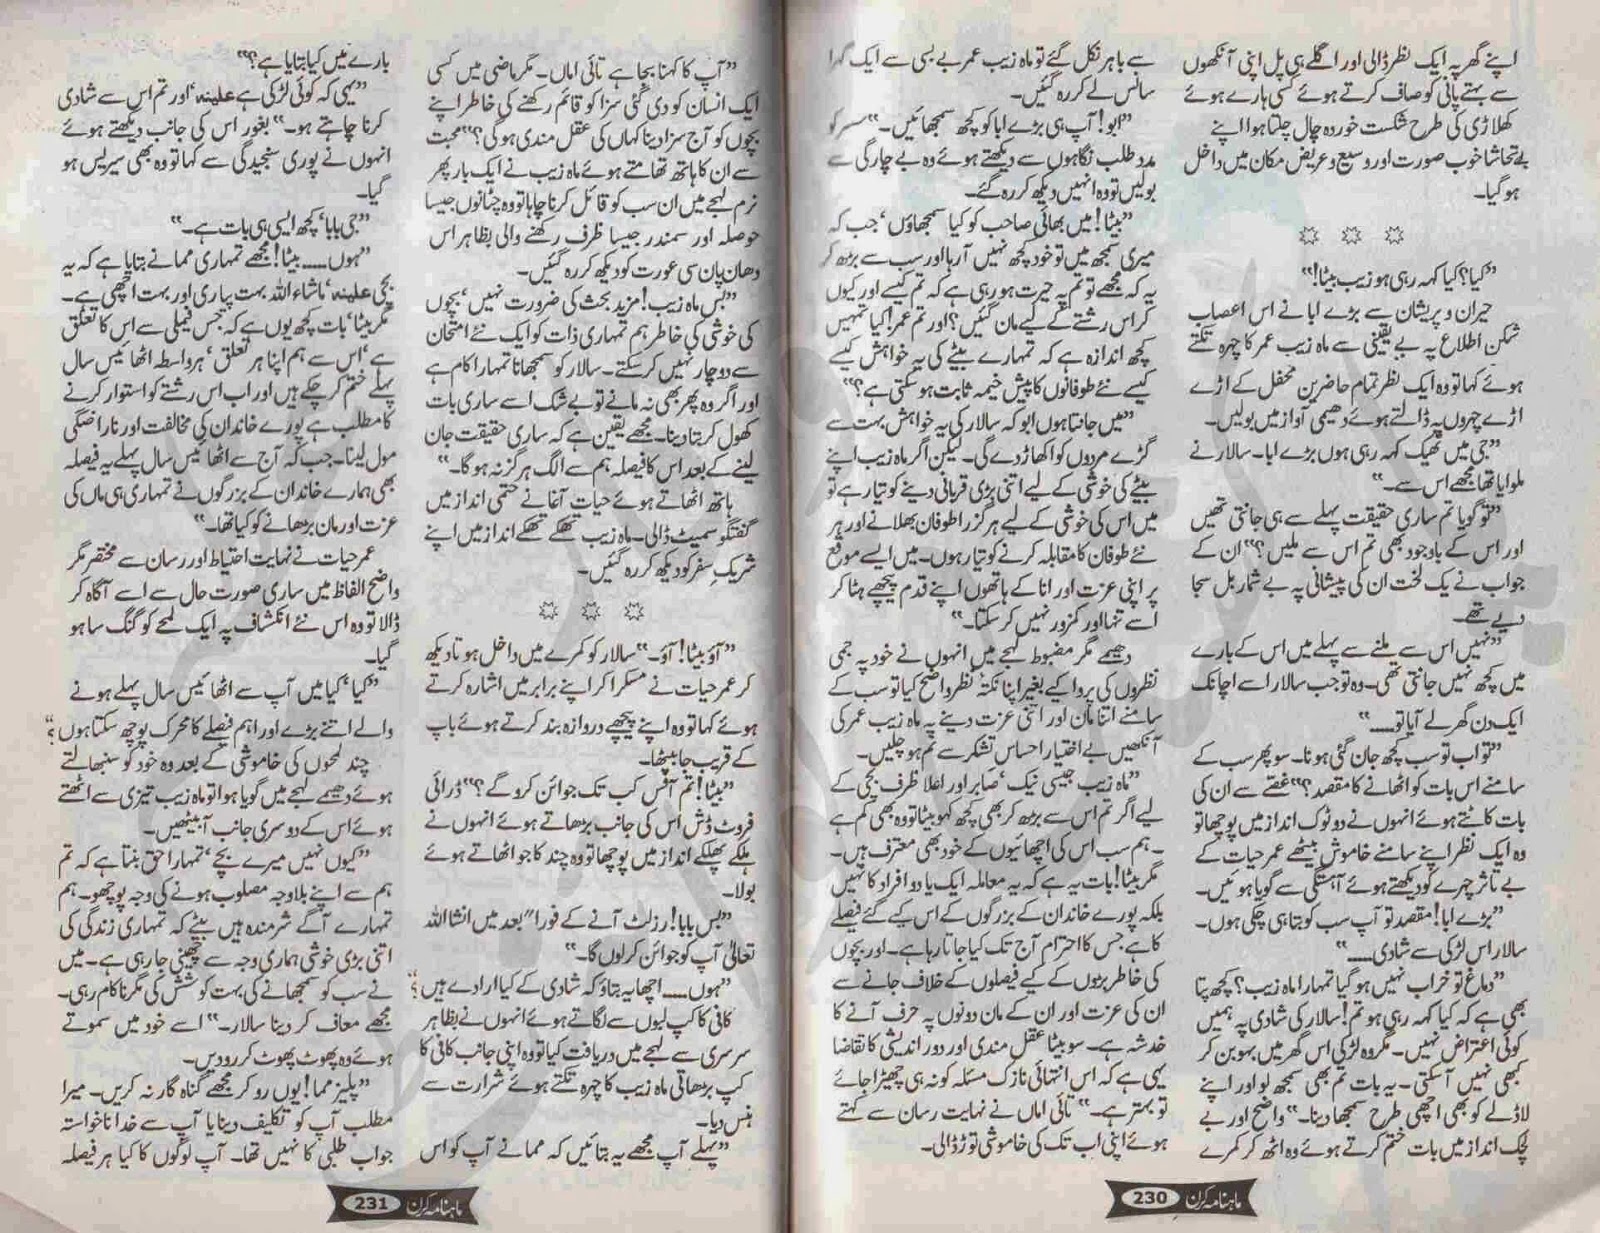 اپنے گھر پہ ایک نظر ڈالی اور اگلے ہی پل اپنی آنکھوں
سے بہتے پانی کو صاف کرتے ہوئے کسی ہارے ہوئے
کھلاڑی کی طرح شکست خوردہ چال چلتا ہوا اپنے
بے تحاشا خوب صورت اور وسیع و عریض مکان میں داخل
ہو گیا۔
☼ ☼ ☼
”کیا؟ کیا کہہ رہی ہو زیب بیٹا!“
حیران و پریشان سے بڑے ابا نے اس اعصاب
شکن اطلاع پہ بے یقینی سے ماہ زیب عمر کا چہرہ تکتے
ہوئے کہا تو وہ ایک نظر تمام حاضرین محفل کے اڑے
اڑے چہروں پہ ڈالتے ہوئے دھیمی آواز میں بولیں۔
”جی میں ٹھیک کہہ رہی ہوں بڑے ابا۔ سالار نے
ملوایا تھا مجھے اس سے۔“
”تو گویا تم ساری حقیقت پہلے سے ہی جانتی تھیں
اور اس کے باوجود بھی تم اس سے ملیں؟“ ان کے
جواب نے یک لخت ان کی پیشانی پہ بے شمار بل سجا
دیے تھے۔
”نہیں اس سے ملنے سے پہلے میں اس کے بارے
میں کچھ نہیں جانتی تھی۔ وہ تو جب سالار اسے اچانک
ایک دن گھر لے آیا تو.....“
”تو اب تو سب کچھ جان گئی ہونا۔ سو پھر سب کے
سامنے اس بات کو اٹھانے کا مقصد؟“ غصے سے ان کی
بات کاٹتے ہوئے انہوں نے دو ٹوک انداز میں پوچھا تو
وہ ایک نظر اپنے سامنے خاموش بیٹھے عمر حیات کے
بے تاثر چہرے کو دیکھتے ہوئے آہستگی سے گویا ہوئیں۔
”بڑے ابا! مقصد تو آپ سب کو بتا ہی چکی ہوں۔
سالار اس لڑکی سے شادی.....“
”دماغ تو خراب نہیں ہو گیا تمہارا ماہ زیب؟ کچھ پتا
بھی ہے کہ کیا کہہ رہی ہو تم! سالار کی شادی پہ ہمیں
کوئی اعتراض نہیں۔ مگر وہ لڑکی اس گھر میں بہو بن کر
کبھی نہیں آسکتی۔ یہ بات تم بھی سمجھ لو اور اپنے
لاڈلے کو بھی اچھی طرح سمجھا دینا۔“ واضح اور بے
لچک انداز میں بات ختم کرتے ہوئے وہ اٹھ کر کمرے
سے باہر نکل گئے تو ماہ زیب عمر بے بسی سے ایک گہرا
سانس لے کر رہ گئیں۔
”ابو! آپ ہی بڑے ابا کو کچھ سمجھائیں۔“ سسر کو
مدد طلب نگاہوں سے دیکھتے ہوئے وہ بے چارگی سے
بولیں تو وہ انہیں دیکھ کر رہ گئے۔
”بیٹا! میں بھائی صاحب کو کیا سمجھاؤں‘ جب کہ
میری سمجھ میں تو خود کچھ نہیں آرہا اور سب سے بڑھ کر
یہ کہ مجھے تو تم پہ حیرت ہو رہی ہے کہ تم کیسے اور کیوں
کر اس رشتے کے لیے مان گئیں؟ اور تم عمر! کیا تمہیں
کچھ اندازہ ہے کہ تمہارے بیٹے کی یہ خواہش کیسے
کیسے نئے طوفانوں کا پیش خیمہ ثابت ہو سکتی ہے؟“
”میں جانتا ہوں ابو کہ سالار کی یہ خواہش بہت سے
گڑے مردوں کو اکھاڑ دے گی۔ لیکن اگر ماہ زیب اپنے
بیٹے کی خوشی کے لیے اتنی بڑی قربانی دینے کو تیار ہے تو
میں اس کی خوشی کے لیے ہر گزرا طوفان بھلانے اور ہر
نئے طوفان کا مقابلہ کرنے کو تیار ہوں۔ میں ایسے موقع
پر اپنی عزت اور انا کے ہاتھوں اپنے قدم پیچھے ہٹا کر
اسے تنہا اور کمزور نہیں کر سکتا۔“
دھیمے مگر مضبوط لہجے میں انہوں نے خود پہ جمی
نظروں کی پروا کیے بغیر اپنا نکتہ نظر واضح کیا تو سب کے
سامنے اتنا مان اور اتنی عزت دینے پہ ماہ زیب عمر کی
آنکھیں بے اختیار احساس تشکر سے نم ہو چلیں۔
”ماہ زیب جیسی نیک‘ صابر اور اعلا ظرف بچی کے
لیے اگر تم اس سے بڑھ کر بھی کچھ کہو بیٹا تو وہ بھی کم ہے
۔ ہم سب اس کی اچھائیوں کے خود بھی معترف ہیں۔
مگر بیٹا! بات یہ ہے کہ یہ معاملہ ایک یا دو افراد کا نہیں
بلکہ پورے خاندان کے بزرگوں کے اس کیے گئے فیصلے
کا ہے جس کا احترام آج تک کیا جاتا رہا ہے۔ اور بچوں
کی خاطر بڑوں کے کیے فیصلوں کے خلاف جانے سے
ان کی عزت اور ان کے مان دونوں پہ حرف آنے کا
خدشہ ہے۔ سو بیٹا عقل مندی اور دور اندیشی کا تقاضا
یہی ہے کہ اس انتہائی نازک مسئلہ کو نہ ہی چھیڑا جائے
تو بہتر ہے۔“ تائی اماں نے نہایت رسان سے کہتے
ہوئے اپنی اب تک کی خاموشی توڑ ڈالی۔
ماہنامہ کرن 230
”آپ کا کہنا بجا ہے تائی اماں۔ مگر ماضی میں کسی
ایک انسان کو دی گئی سزا کو قائم رکھنے کی خاطر اپنے
بچوں کو آج سزا دینا کہاں کی عقل مندی ہو گی؟“ محبت
سے ان کا ہاتھ تھامتے ہوئے ماہ زیب نے ایک بار پھر
نرم لہجے میں ان سب کو قائل کرنا چاہا تو وہ چٹانوں جیسا
حوصلہ اور سمندر جیسا ظرف رکھنے والی بظاہر اس
دھان پان سی عورت کو دیکھ کر رہ گئیں۔
”بس ماہ زیب! مزید بحث کی ضرورت نہیں‘ بچوں
کی خوشی کی خاطر ہم تمہاری ذات کو ایک نئے امتحان
سے دوچار نہیں کر سکتے۔ سالار کو سمجھانا تمہارا کام ہے
اور اگر وہ پھر بھی نہ مانے تو بے شک اسے ساری بات
کھول کر بتا دینا۔ مجھے یقین ہے کہ ساری حقیقت جان
لینے کے بعد اس کا فیصلہ ہم سے الگ ہر گز نہ ہو گا۔“
ہاتھ اٹھاتے ہوئے حیات آغا نے حتمی انداز میں
گفتگو سمیٹ ڈالی۔ ماہ زیب تھکے تھکے انداز میں اپنے
شریک سفر کو دیکھ کر رہ گئیں۔
☼ ☼ ☼
”آؤ بیٹا! آؤ۔“ سالار کو کمرے میں داخل ہوتا دیکھ
کر عمر حیات نے مسکرا کر اپنے برابر میں اشارہ کرتے
ہوئے کہا تو وہ اپنے پیچھے دروازہ بند کرتے ہوئے باپ
کے قریب جا بیٹھا۔
”بیٹا! تم آفس کب تک جوائن کرو گے؟“ ڈرائی
فروٹ ڈش اس کی جانب بڑھاتے ہوئے انہوں نے
ہلکے پھلکے انداز میں پوچھا تو وہ چند کاجو اٹھاتے ہوئے
بولا۔
”بس بابا! رزلٹ آنے کے فورا“ بعد میں انشا اللہ
تعالیٰ آپ کو جوائن کر لوں گا۔“
”ہوں..... اچھا یہ بتاؤ کہ شادی کے کیا ارادے ہیں؟“
کافی کا کپ لبوں سے لگاتے ہوئے انہوں نے بظاہر
سرسری سے لہجے میں دریافت کیا تو وہ اپنی جانب کافی کا
کپ بڑھاتی ماہ زیب کا چہرہ تکتے ہوئے شرارت سے
ہنس دیا۔
”پہلے آپ مجھے یہ بتائیں کہ ممانے آپ کو اس
بارے میں کیا بتایا ہے؟“
”یہی کہ کوئی لڑکی ہے علینہ‘ اور تم اس سے شادی
کرنا چاہتے ہو۔“ بغور اس کی جانب دیکھتے ہوئے
انہوں نے پوری سنجیدگی سے کہا تو وہ بھی سیریس ہو
گیا۔
”جی بابا‘ کچھ ایسی ہی بات ہے۔“
”ہوں..... بیٹا! مجھے تمہاری ممانے بتایا ہے کہ یہ
بچی علینہ‘ ماشاء اللہ بہت پیاری اور بہت اچھی ہے۔
مگر بیٹا‘ بات کچھ یوں ہے کہ جس فیملی سے اس کا تعلق
ہے‘ اس سے ہم اپنا ہر تعلق‘ ہر واسطہ اٹھائیس سال
پہلے ختم کر چکے ہیں اور اب اس رشتے کو استوار کرنے
کا مطلب ہے پورے خاندان کی مخالفت اور ناراضگی
مول لینا۔ جب کہ آج سے اٹھائیس سال پہلے یہ فیصلہ
بھی ہمارے خاندان کے بزرگوں نے تمہاری ہی ماں کی
عزت اور مان بڑھانے کو کیا تھا۔“
عمر حیات نے نہایت احتیاط اور رسان سے مختصر مگر
واضح الفاظ میں ساری صورت حال سے اسے آگاہ کر
ڈالا تو وہ اس نئے انکشاف پہ ایک لمحے کو گنگ سا ہو
گیا۔
”کیا‘ کیا میں آپ سے اٹھائیس سال پہلے ہونے
والے اتنے بڑے اور اہم فیصلے کا محرک پوچھ سکتا ہوں؟“
چند لمحوں کی خاموشی کے بعد وہ خود کو سنبھالتے
ہوئے دھیمے لہجے میں گویا ہوا تو ماہ زیب تیزی سے اٹھتے
ہوئے اس کے دوسری جانب آبیٹھیں۔
”کیوں نہیں میرے بچے‘ تمہارا حق بنتا ہے کہ تم
ہم سے اپنے بلاوجہ مصلوب ہونے کی وجہ پوچھو۔ ہم
تمہارے آگے شرمندہ ہیں بیٹے کہ تمہاری زندگی کی
اتنی بڑی خوشی ہماری وجہ سے چھینی جا رہی ہے۔ میں
نے سب کو سمجھانے کی بہت کوشش کی مگر ناکام رہی۔
مجھے معاف کر دینا سالار۔“ اسے خود میں سموتے
ہوئے وہ پھوٹ پھوٹ کر رو دیں۔
”پلیز مما! یوں رو کر مجھے گناہ گار نہ کریں۔ میرا
مطلب آپ کو تکلیف دینا یا آپ سے خدا ناخواستہ
جواب طلبی کا نہیں تھا۔ آپ لوگوں کا کیا ہر فیصلہ
ماہنامہ کرن 231